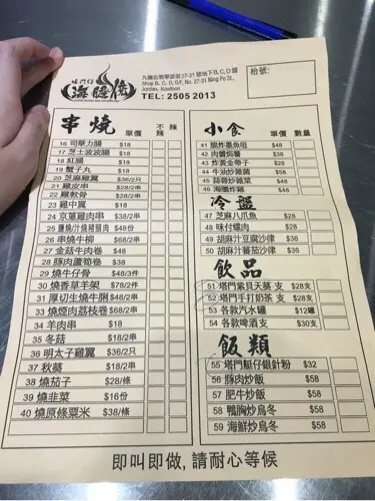 塔門仔
海膽佬
九龍佐敦寧波街27-31號地下B,C,D鋪
Shop B, C, D, G/F, No. 27-31 Ning Po St.,
Jordan, Kowloon
TEL: 2505 2013
枱號:
串燒 單價 不辣 辣
16 司華力腸 $18
17 芝士波波腸 $18
18 紅腸 $18
19 蟹子丸 $18
20 芝麻雞翼 $36/2只
21 雞皮串 $28/2串
22 雞軟骨 $28/2串
23 雞中翼 $18
24 京蔥雞肉串 $38/2串
25 鹽燒/汁燒豬頸肉 $48份
26 串燒牛柳 $68/2串
27 金菇牛肉卷 $48
28 豚肉蘆筍卷 $38
29 燒牛仔骨 $48/3件
30 燒香草羊架 $78/2件
31 厚切生燒牛脷 $48/2串
33 燒煙肉荔枝卷 $68/2串
34 羊肉串 $18
35 冬菇 $18/2串
36 明太子雞翼 $36/2只
37 秋葵 $18/2串
38 燒茄子 $28/條
39 燒韭菜 $16份
40 燒原條粟米 $38/條
小食 單價 數量
41 脆炸墨魚咀 $48
42 肉醬焗薯 $38
43 炸黃金帶子 $28
44 牛油炒雜菌 $58
45 蒜蓉炒雜菜 $48
46 海膽炸雞 $48
冷盤
47 芝麻八爪魚 $28
48 味付螺肉 $28
49 胡麻汁豆腐沙律 $36
50 胡麻汁蕃茄沙律 $36
飲品
51 塔門紫貝天葵 支 $28支
52 塔門手打奶茶 支 $28支
53 各款汽水罐 $12罐
54 各款啤酒 支 $30支
飯類
55 塔門艇仔銀針粉 $32
56 豚肉炒飯 $58
57 肥牛炒飯 $58
58 鴨胸炒烏冬 $58
59 海鮮炒烏冬 $58
即叫即做, 請耐心等候